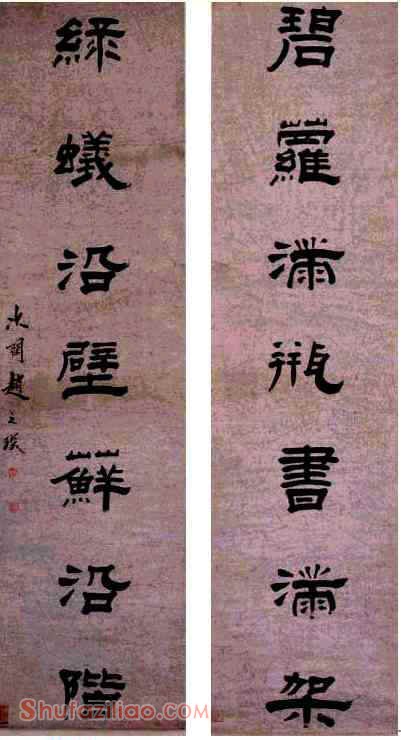 碧蘿滿瓶書滿架
綠蟻沿壁蘚沿階
次閑趙之琛
Shufaziliao.com